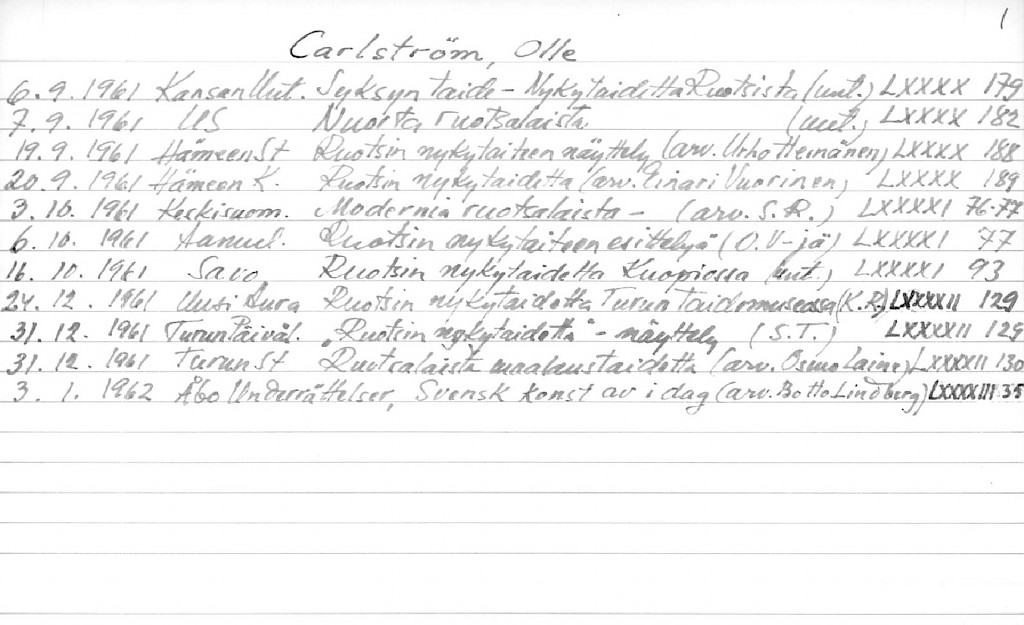 1
Carlström, Olle
6. 9. 1961 Kansan Uut. Syksyn taide - Nykytaidetta Ruotsista (uut.) LXXXX 179
7. 9. 1961 US Nuorta ruotsalaista (uut.) LXXXX 182
19. 9. 1961 HämeenSt Ruotsin nykytaiteen näyttely (arv. Urho Heinänen) LXXXX 188
20. 9. 1961 Hämeen K. Ruotsin nykytaidetta (arv. Einari Vuorinen) LXXXX 189
3. 10. 1961 Keskisuom. Modernia ruotsalaista - (arv. S.R.) LXXXXI 76-77
6. 10. 1961 Aamul. Ruotsin nykytaiteen esittelyä (O.V-jä) LXXXXI 77
16. 10. 1961 Savo Ruotsin nykytaidetta Kuopiossa (uut.) LXXXXI 93
24. 12. 1961 Uusi Aura Ruotsin nykytaidetta Turun Taidemuseossa (K.R.) LXXXXII 129
31. 12. 1961 Turun Päiväl. "Ruotsin nykytaidetta" - näyttely (S.T.) LXXXXII 129
31. 12. 1961 TurunSt Ruotsalaista maalaustaidetta (arv. Osmo Laine) LXXXXII 130
3. 1. 1962 Åbo Underrättelser, Svensk konst av i dag (arv. Botto Lindberg) LXXXXIII 35